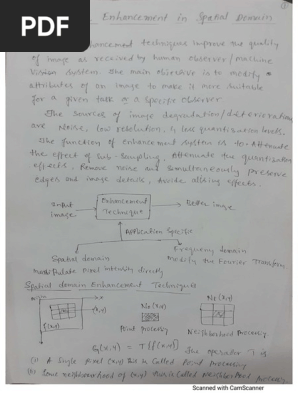 PDF
Enhancement in Spatial Domain
enhancement techniques improve the quality
of image as received by human observer / machine
vision system. The main objective is to modify
attributes of an image to make it more suitable
for a given task & a specific observer
The sources of image degradation/deterioration
are Noise, low resolution, & less quantization levels.
The function of enhancement system is to
the effect of sub-sampling, Attenuate the quantization
effects, Remove noise and simultaneously preserve
edges and image details, avoid effects.
Input Image
Enhancement Technique
Better image
Application Specific
Spatial domain
manipulate pixel intensity directly
Frequency domain
Modify the Fourier Transform
Spatial domain Enhancement Techniques
(x,y)
f(x,y)
Ne(x,y)
Point Processing
Ne(x,y)
Neighborhood Processing.
G(x,y) = T[f(x,y)] The operator T is
(i) A Single pixel (x,y) this is called Point Processing
(ii) Some neighbourhood of (x,y) this is called Neighborhood Processing
Scanned with CamScanner